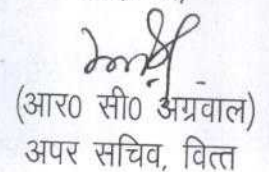 (आर0 सी0 अग्रवाल)
अपर सचिव, वित्त